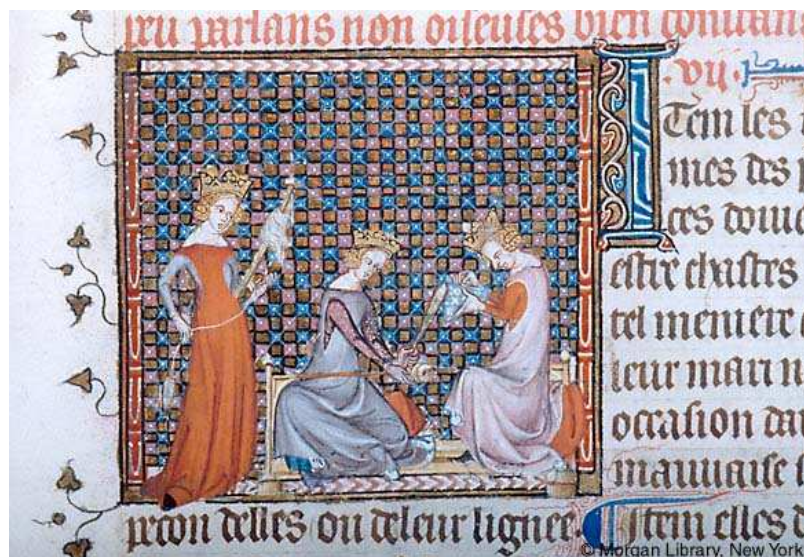 peu parlans non oiseuses bien
.vij.
Item les
mes des
ces
estre chastes
tel meniere
leur mari
occasion
mauuaise
pecon delles ou de leur lignee. Item elles
© Morgan Library, New York